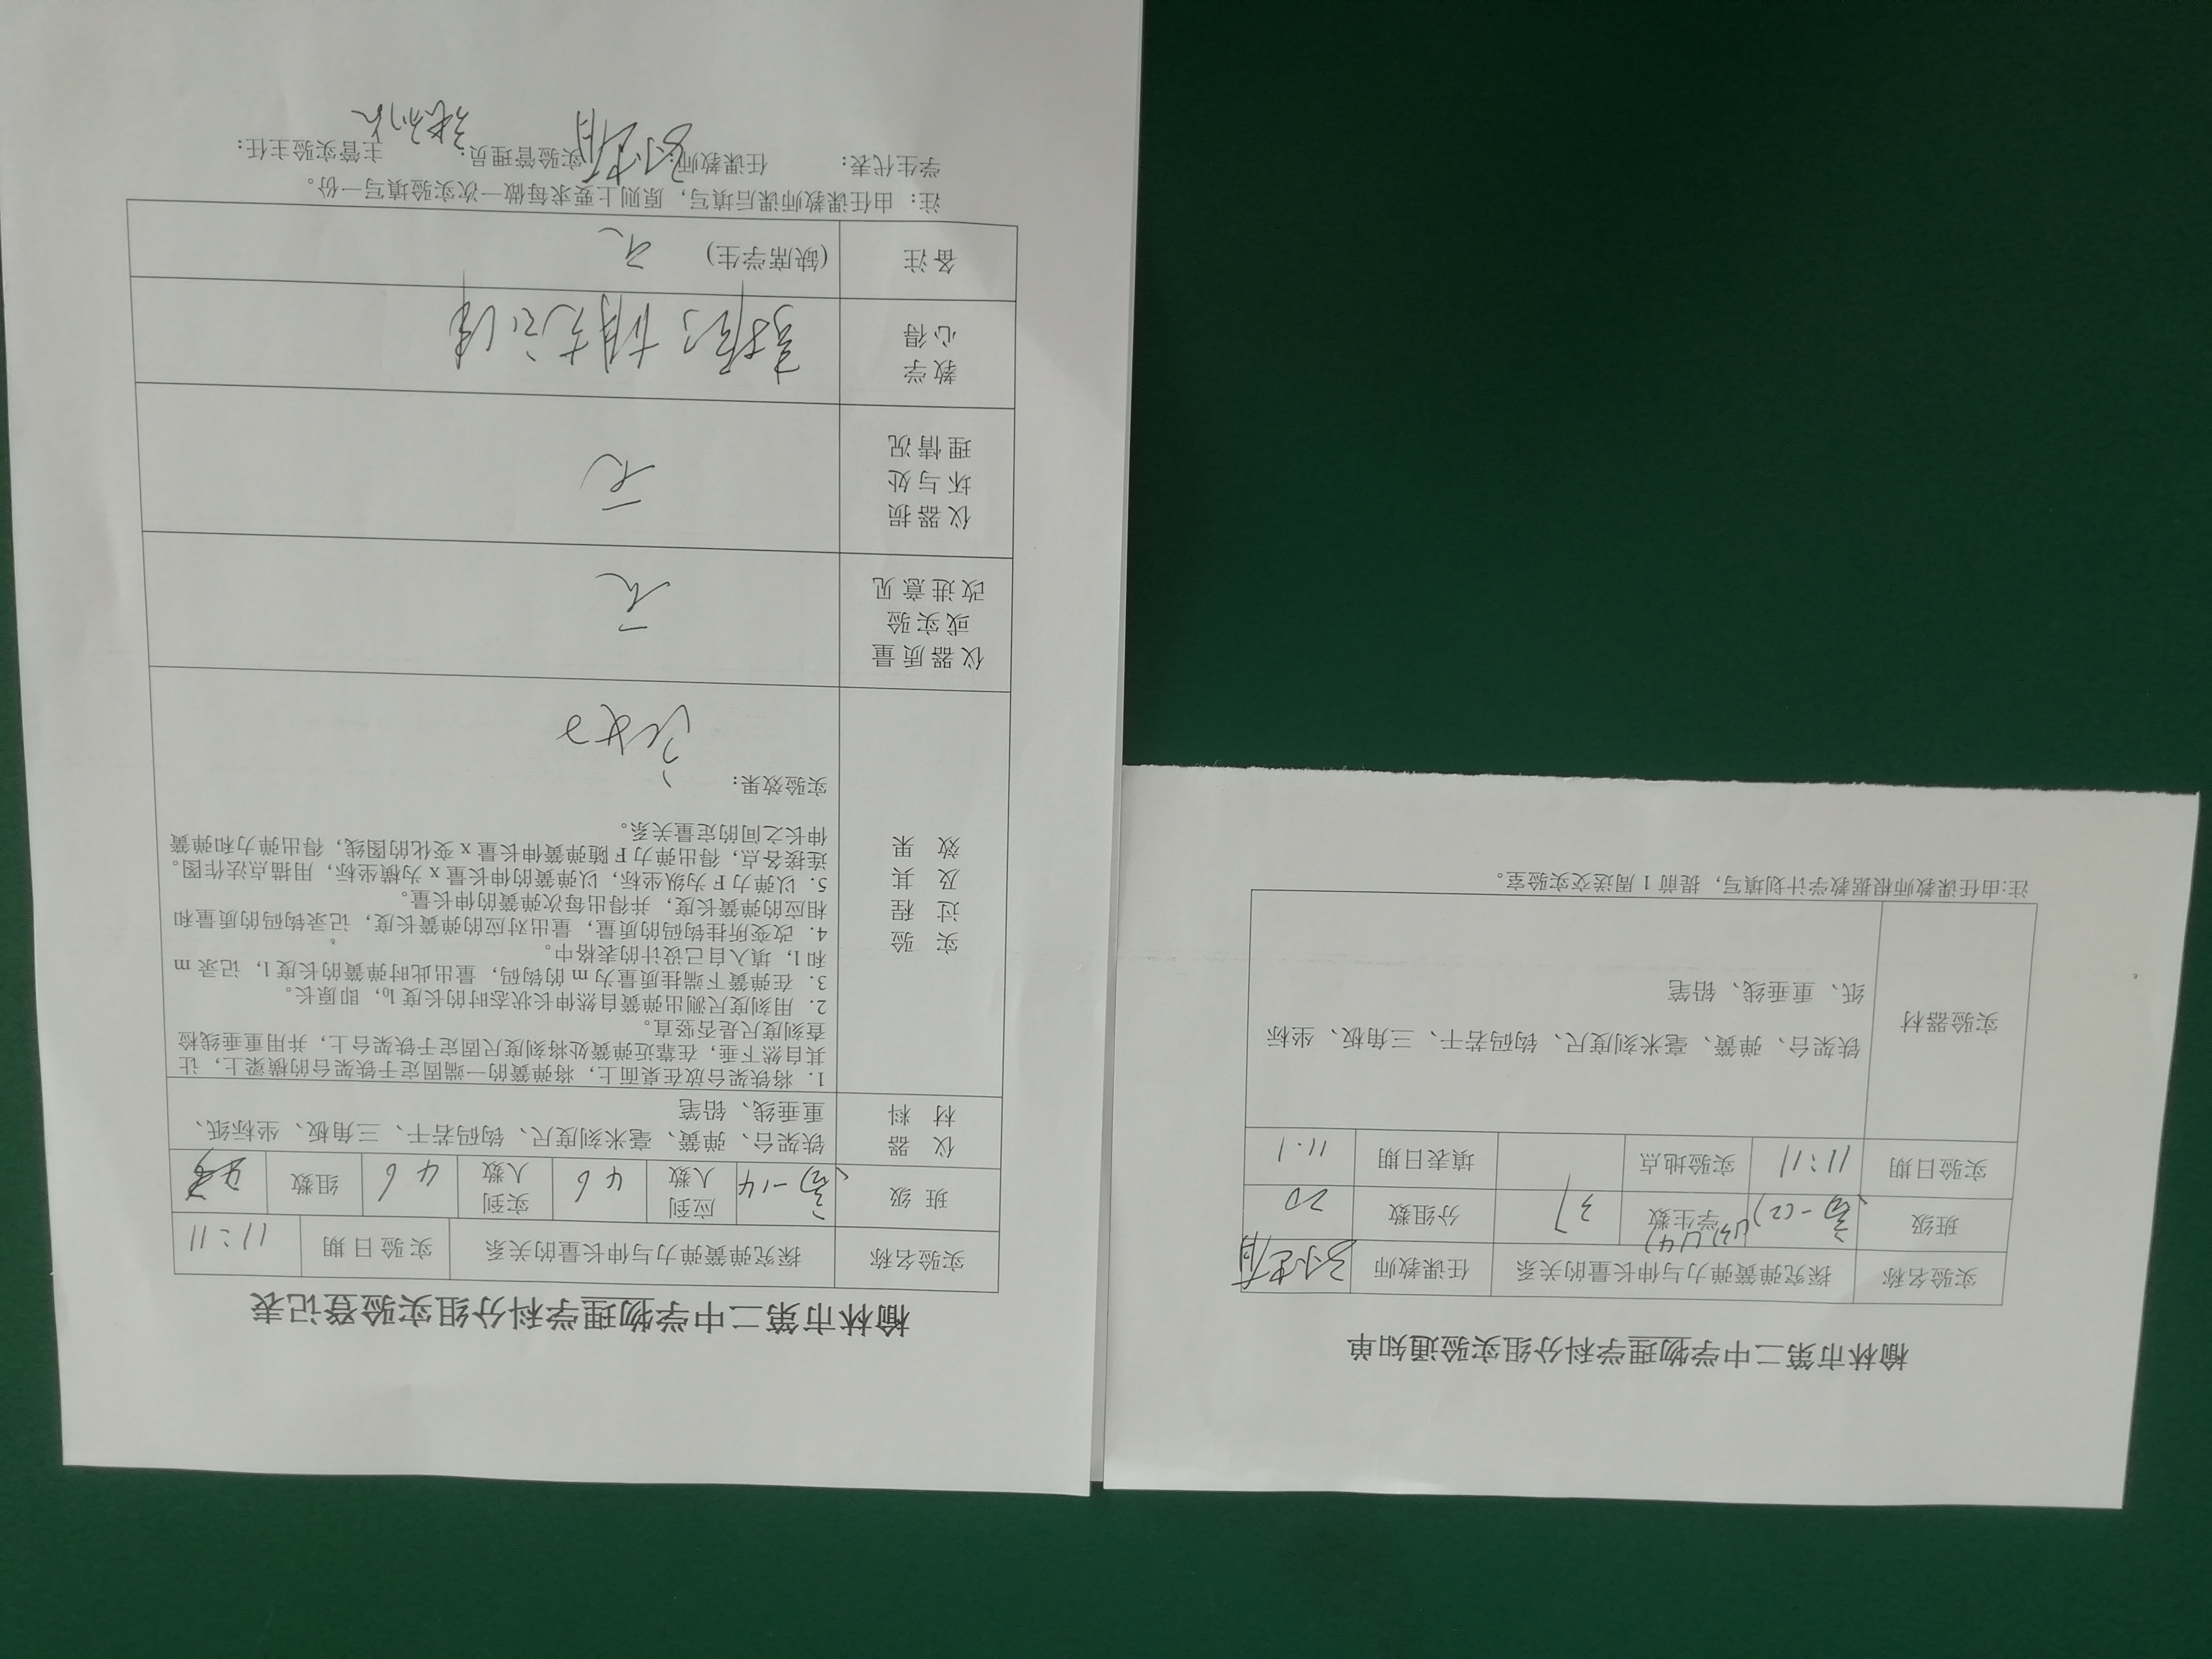 榆林市第二中学物理学科分组实验通知单
实验名称 探究弹簧弹力与伸长量的关系 任课教师
班级 高一(2) (3) (4) 学生数 37 分组数 20
实验日期 11:11 实验地点 填表日期 11.1
实验器材
铁架台、弹簧、毫米刻度尺、钩码若干、三角板、坐标
纸、重垂线、铅笔
注:由任课教师根据教学计划填写，提前 1 周送交实验室。
榆林市第二中学物理学科分组实验登记表
实验名称 探究弹簧弹力与伸长量的关系 实验日期 11:11
班 级 高一14 应到人数 46 实到人数 46 组数
仪 器
材 料
铁架台、弹簧、毫米刻度尺、钩码若干、三角板、坐标纸、
重垂线、铅笔
实 验
过 程
及 其
效 果
1. 将铁架台放在桌面上，将弹簧的一端固定于铁架台的横梁上，让
其自然下垂，在靠近弹簧处将刻度尺固定于铁架台上，并用重垂线检
查刻度尺是否竖直。
2. 用刻度尺测出弹簧自然伸长状态时的长度 l₀，即原长。
3. 在弹簧下端挂质量为 m 的钩码，量出此时弹簧的长度 l，记录 m
和 l，填入自己设计的表格中。
4. 改变所挂钩码的质量，量出对应的弹簧长度，记录钩码的质量和
相应的弹簧长度，并得出每次弹簧的伸长量。
5. 以弹力 F 为纵坐标，以弹簧的伸长量 x 为横坐标，用描点法作图。
连接各点，得出弹力 F 随弹簧伸长量 x 变化的图线，得出弹力和弹簧
伸长之间的定量关系。
实验效果:
良好
仪器质量
或实验
改进意见
无
仪器损
坏与处
理情况
无
教学
心得
掌握了胡克定律
备注 (缺席学生) 无
注: 由任课教师课后填写，原则上要求每做一次实验填写一份。
学生代表: 任课教师: 实验管理员: 主管实验主任: